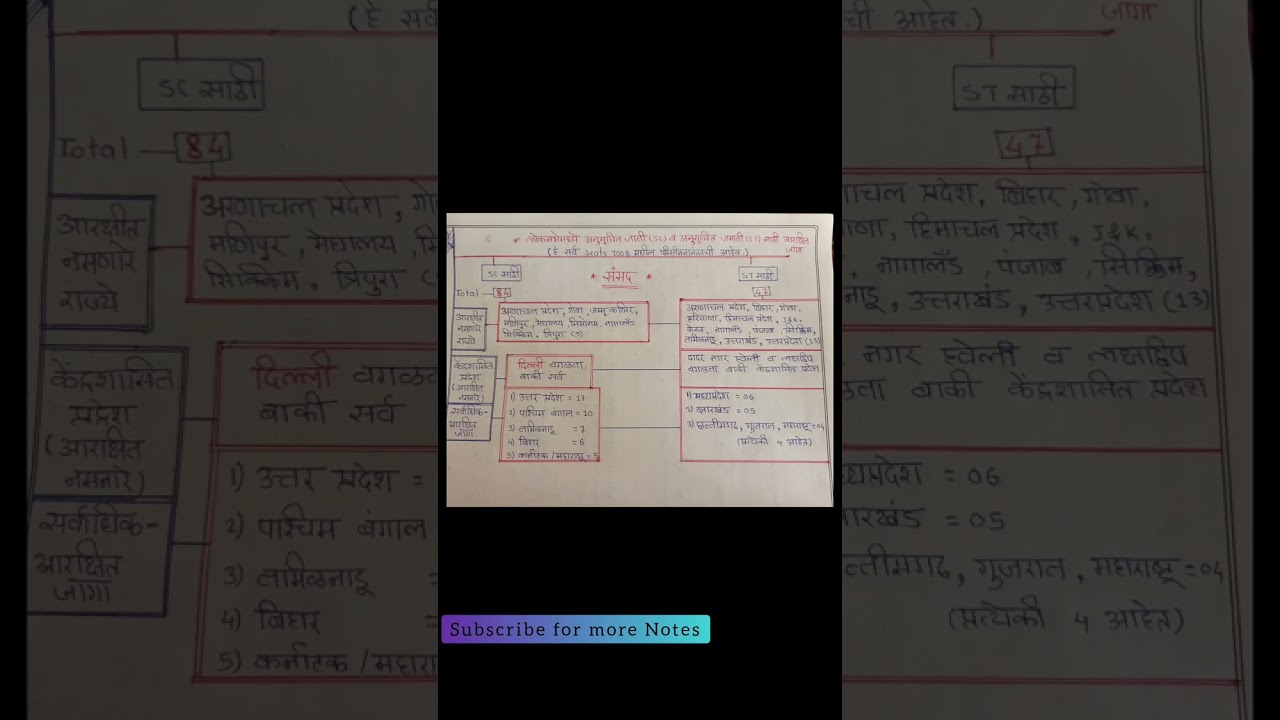 * लोकसभेमध्ये अनुसूचित जाती (SC) व अनुसूचित जमाती (ST) साठी आरक्षित जागा
(हे सर्व Seats 2008 मधील परिसीमनानंतरची आहेत.)
* संसद *
SC साठी
Total — 84
आरक्षीत नसणारे राज्ये
अरुणाचल प्रदेश, गोवा, जम्मू काश्मिर,
मणिपूर, मेघालय, मिझोराम, नागालँड
सिक्किम, त्रिपुरा (9)
केंद्रशासित प्रदेश (आरक्षित नसनारे)
दिल्ली वगळता
बाकी सर्व
सर्वाधिक-आरक्षित जागा
1) उत्तर प्रदेश = 17
2) पाश्चिम बंगाल = 10
3) तामिळनाडू = 7
4) बिहार = 6
5) कर्नाटक / महाराष्ट्र = 5
ST साठी
47
अरुणाचल प्रदेश, बिहार, गोवा,
हरियाणा, हिमाचल प्रदेश, J&K,
केरळ, नागालँड, पंजाब, सिक्किम,
तामिळनाडू, उत्तराखंड, उत्तरप्रदेश (13)
दादर नगर हवेली व लक्षद्विप
वगळता बाकी केंद्रशासित प्रदेश
1) मध्यप्रदेश = 06
2) झारखंड = 05
3) छत्तीसगढ, गुजरात, महाराष्ट्र = 04
(प्रत्येकी 4 आहेत)
Subscribe for more Notes